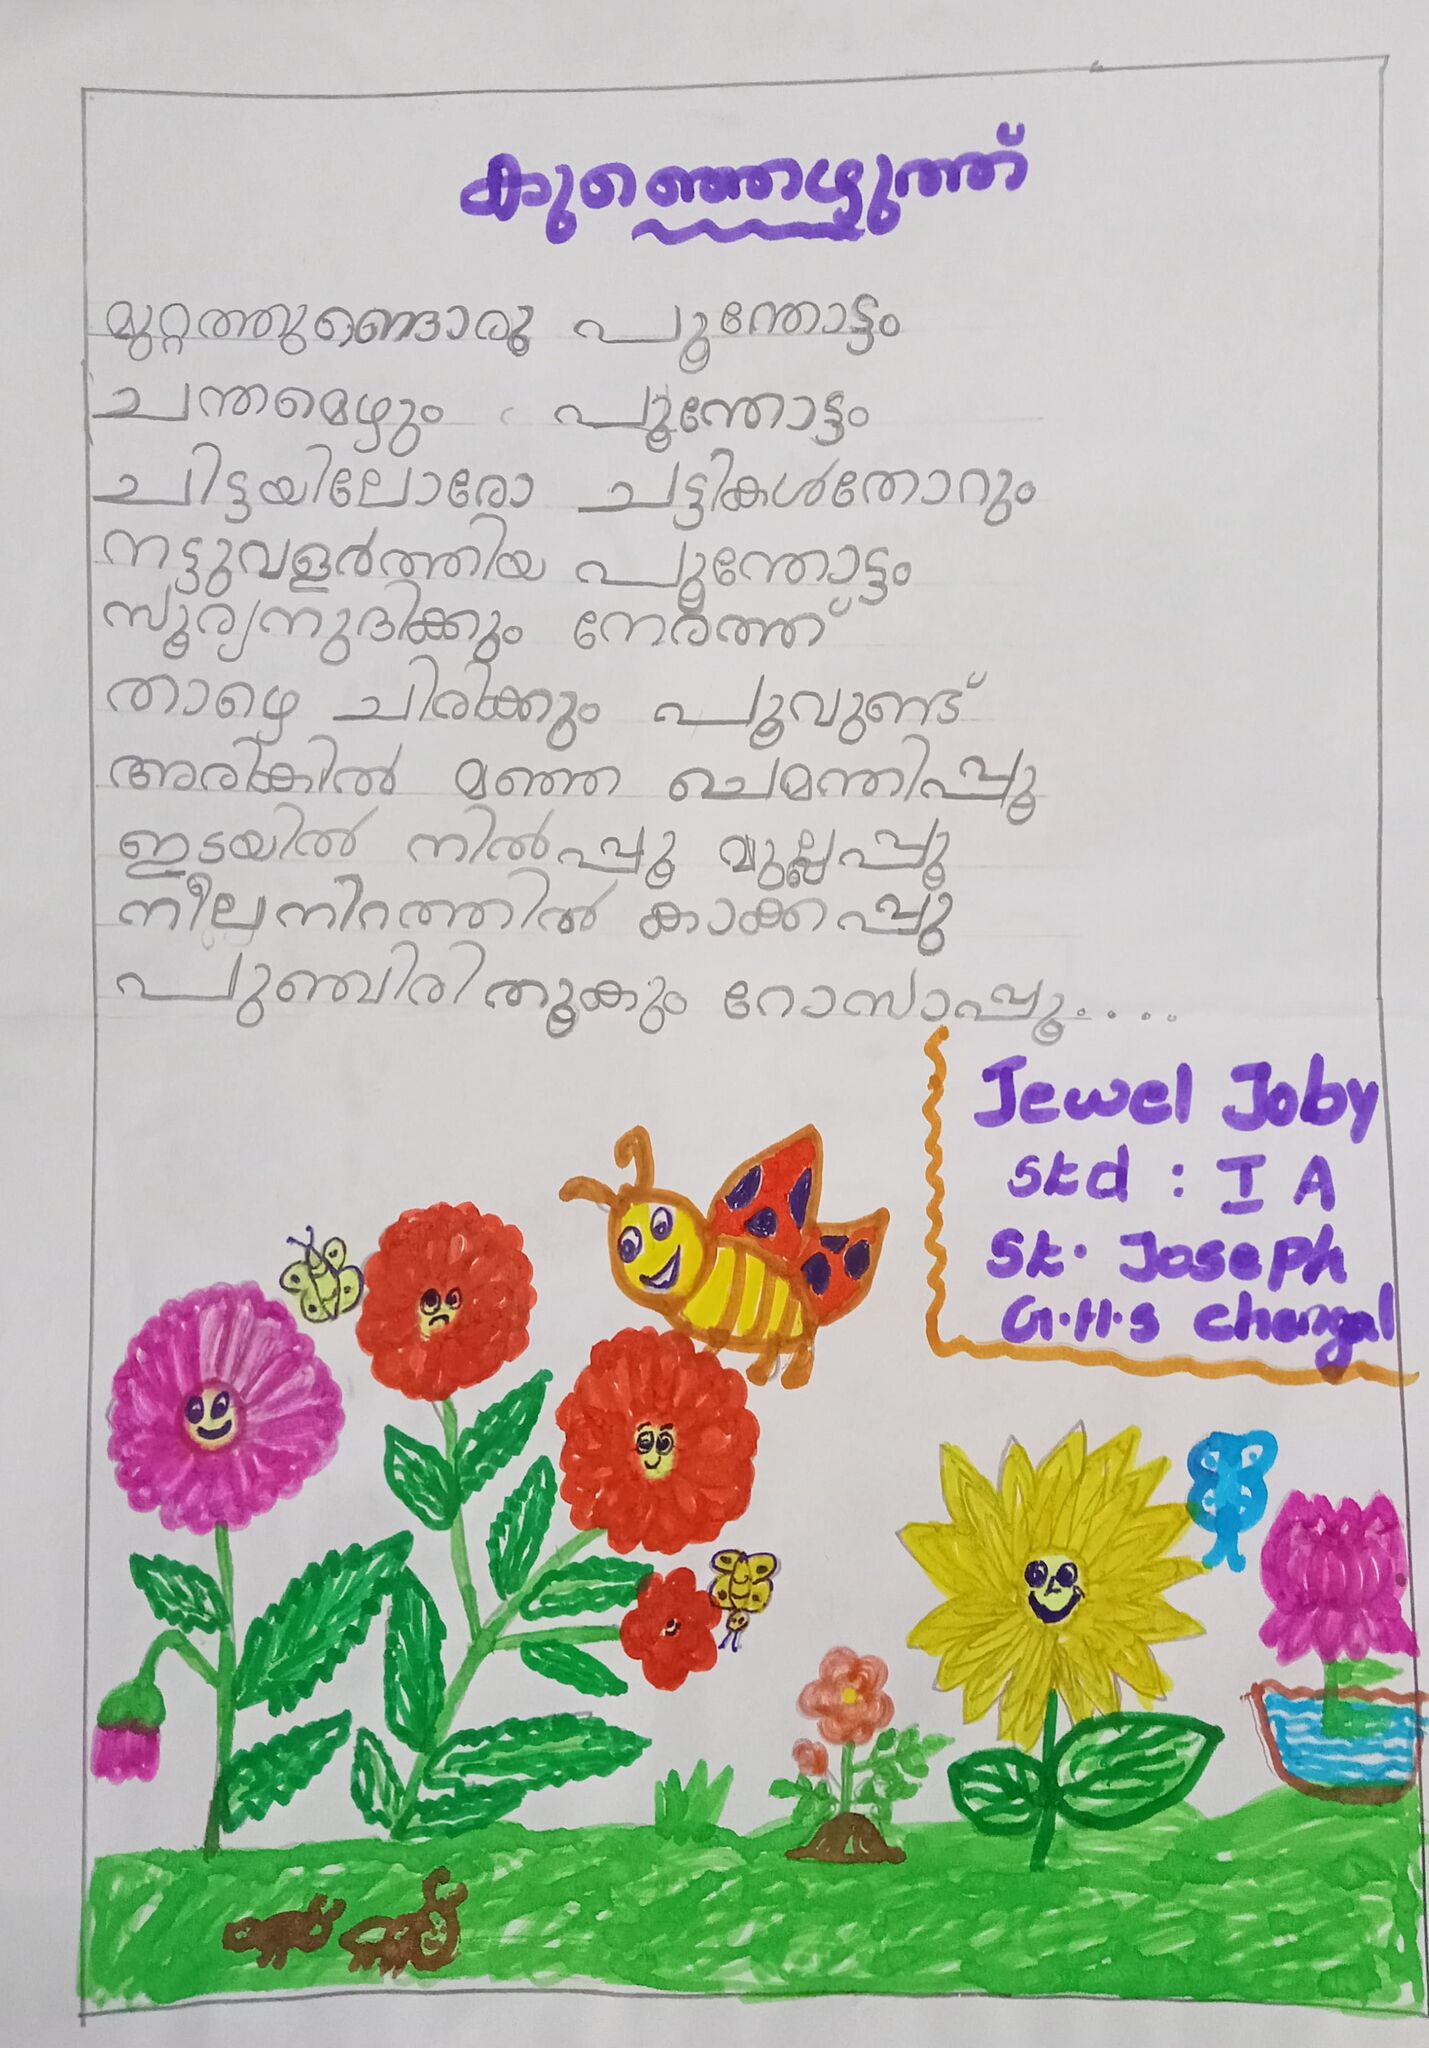 കുഞ്ഞെഴുത്ത്
മുറ്റത്തുണ്ടൊരു പൂന്തോട്ടം
ചന്തമെഴും പൂന്തോട്ടം
ചിട്ടയിലോരോ ചട്ടികൾതോറും
നട്ടുവളർത്തിയ പൂന്തോട്ടം
സൂര്യനുദിക്കും നേരത്ത്
താഴെ ചിരിക്കും പൂവുണ്ട്
അരികിൽ മഞ്ഞ ചെമന്തിപ്പൂ
ഇടയിൽ നിൽപ്പൂ മുല്ലപ്പൂ
നീലനിറത്തിൽ കാക്കപ്പു
പുഞ്ചിരി തൂകും റോസാപ്പൂ....
Jewel Joby
Std : I A
St. Joseph
G.H.S Chengal